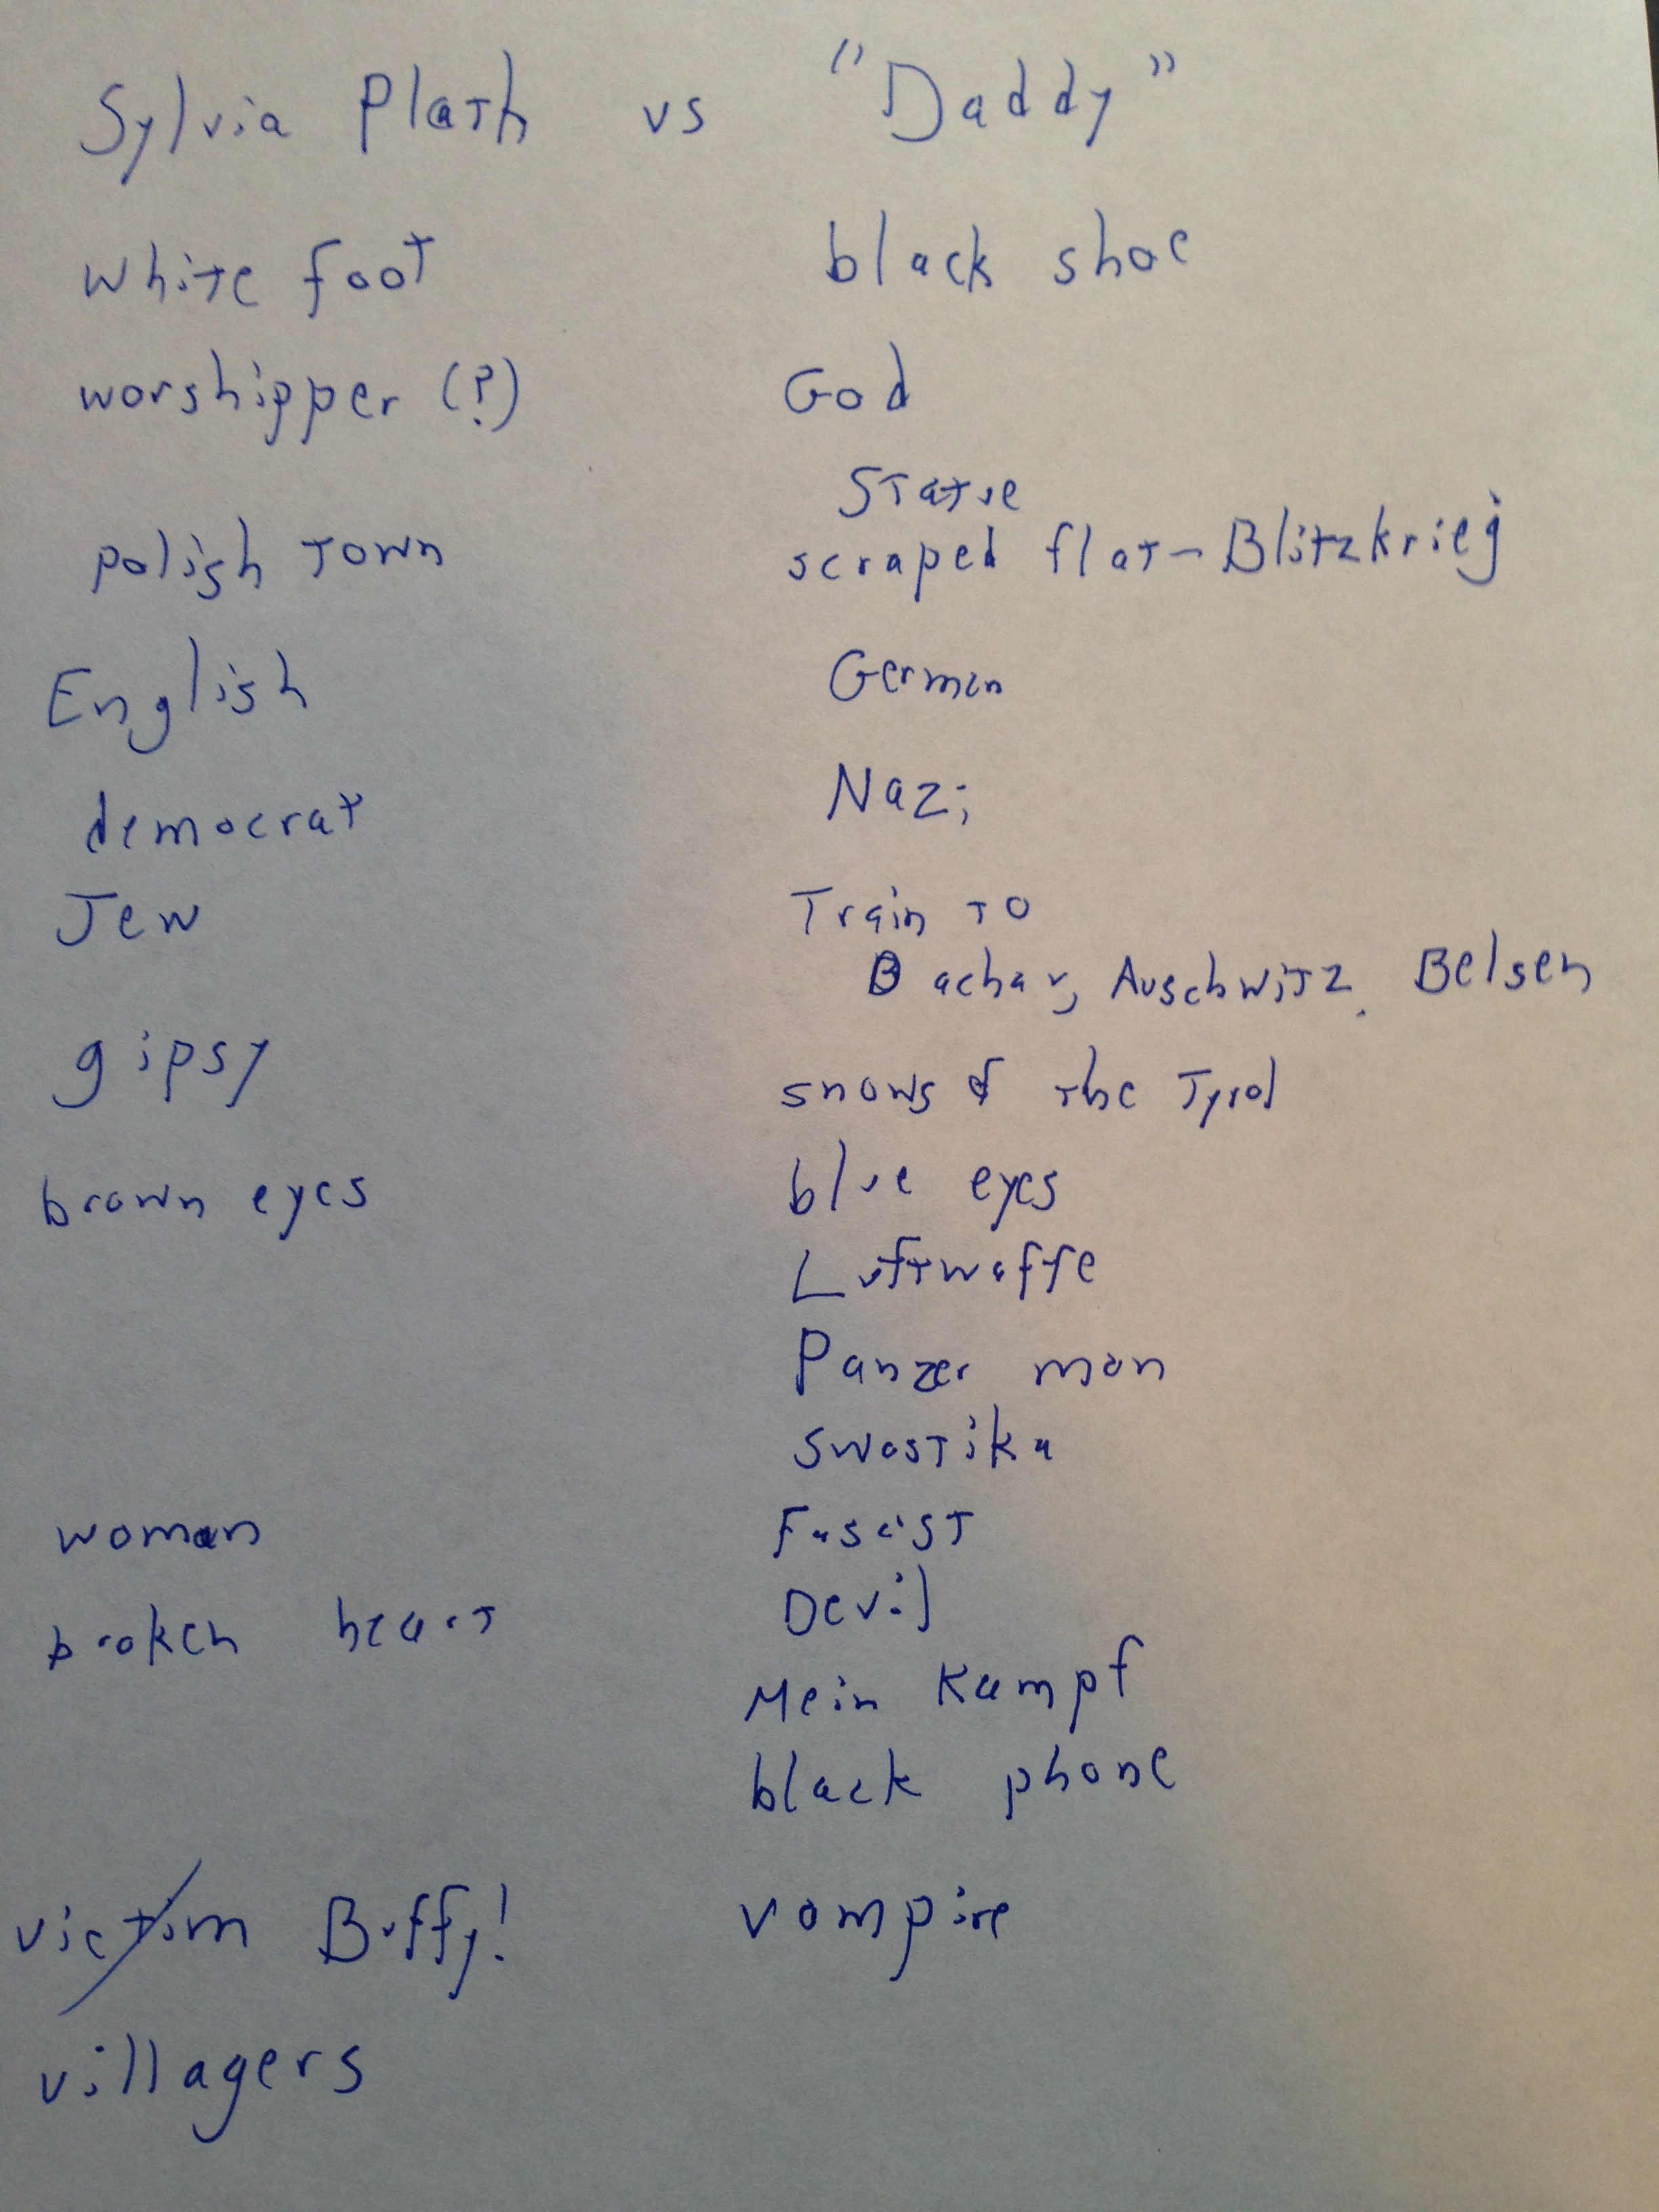 Sylvia Plath vs "Daddy"
white foot black shoe
worshipper (?) God
Statue
polish town scraped flat - Blitzkrieg
English German
democrat Nazi
Jew Train to
Dachau, Auschwitz, Belsen
gipsy snows of the Tyrol
brown eyes blue eyes
Luftwaffe
Panzer man
swastika
woman Fascist
broken heart Devil
Mein Kampf
black phone
victim Buffy! vampire
villagers